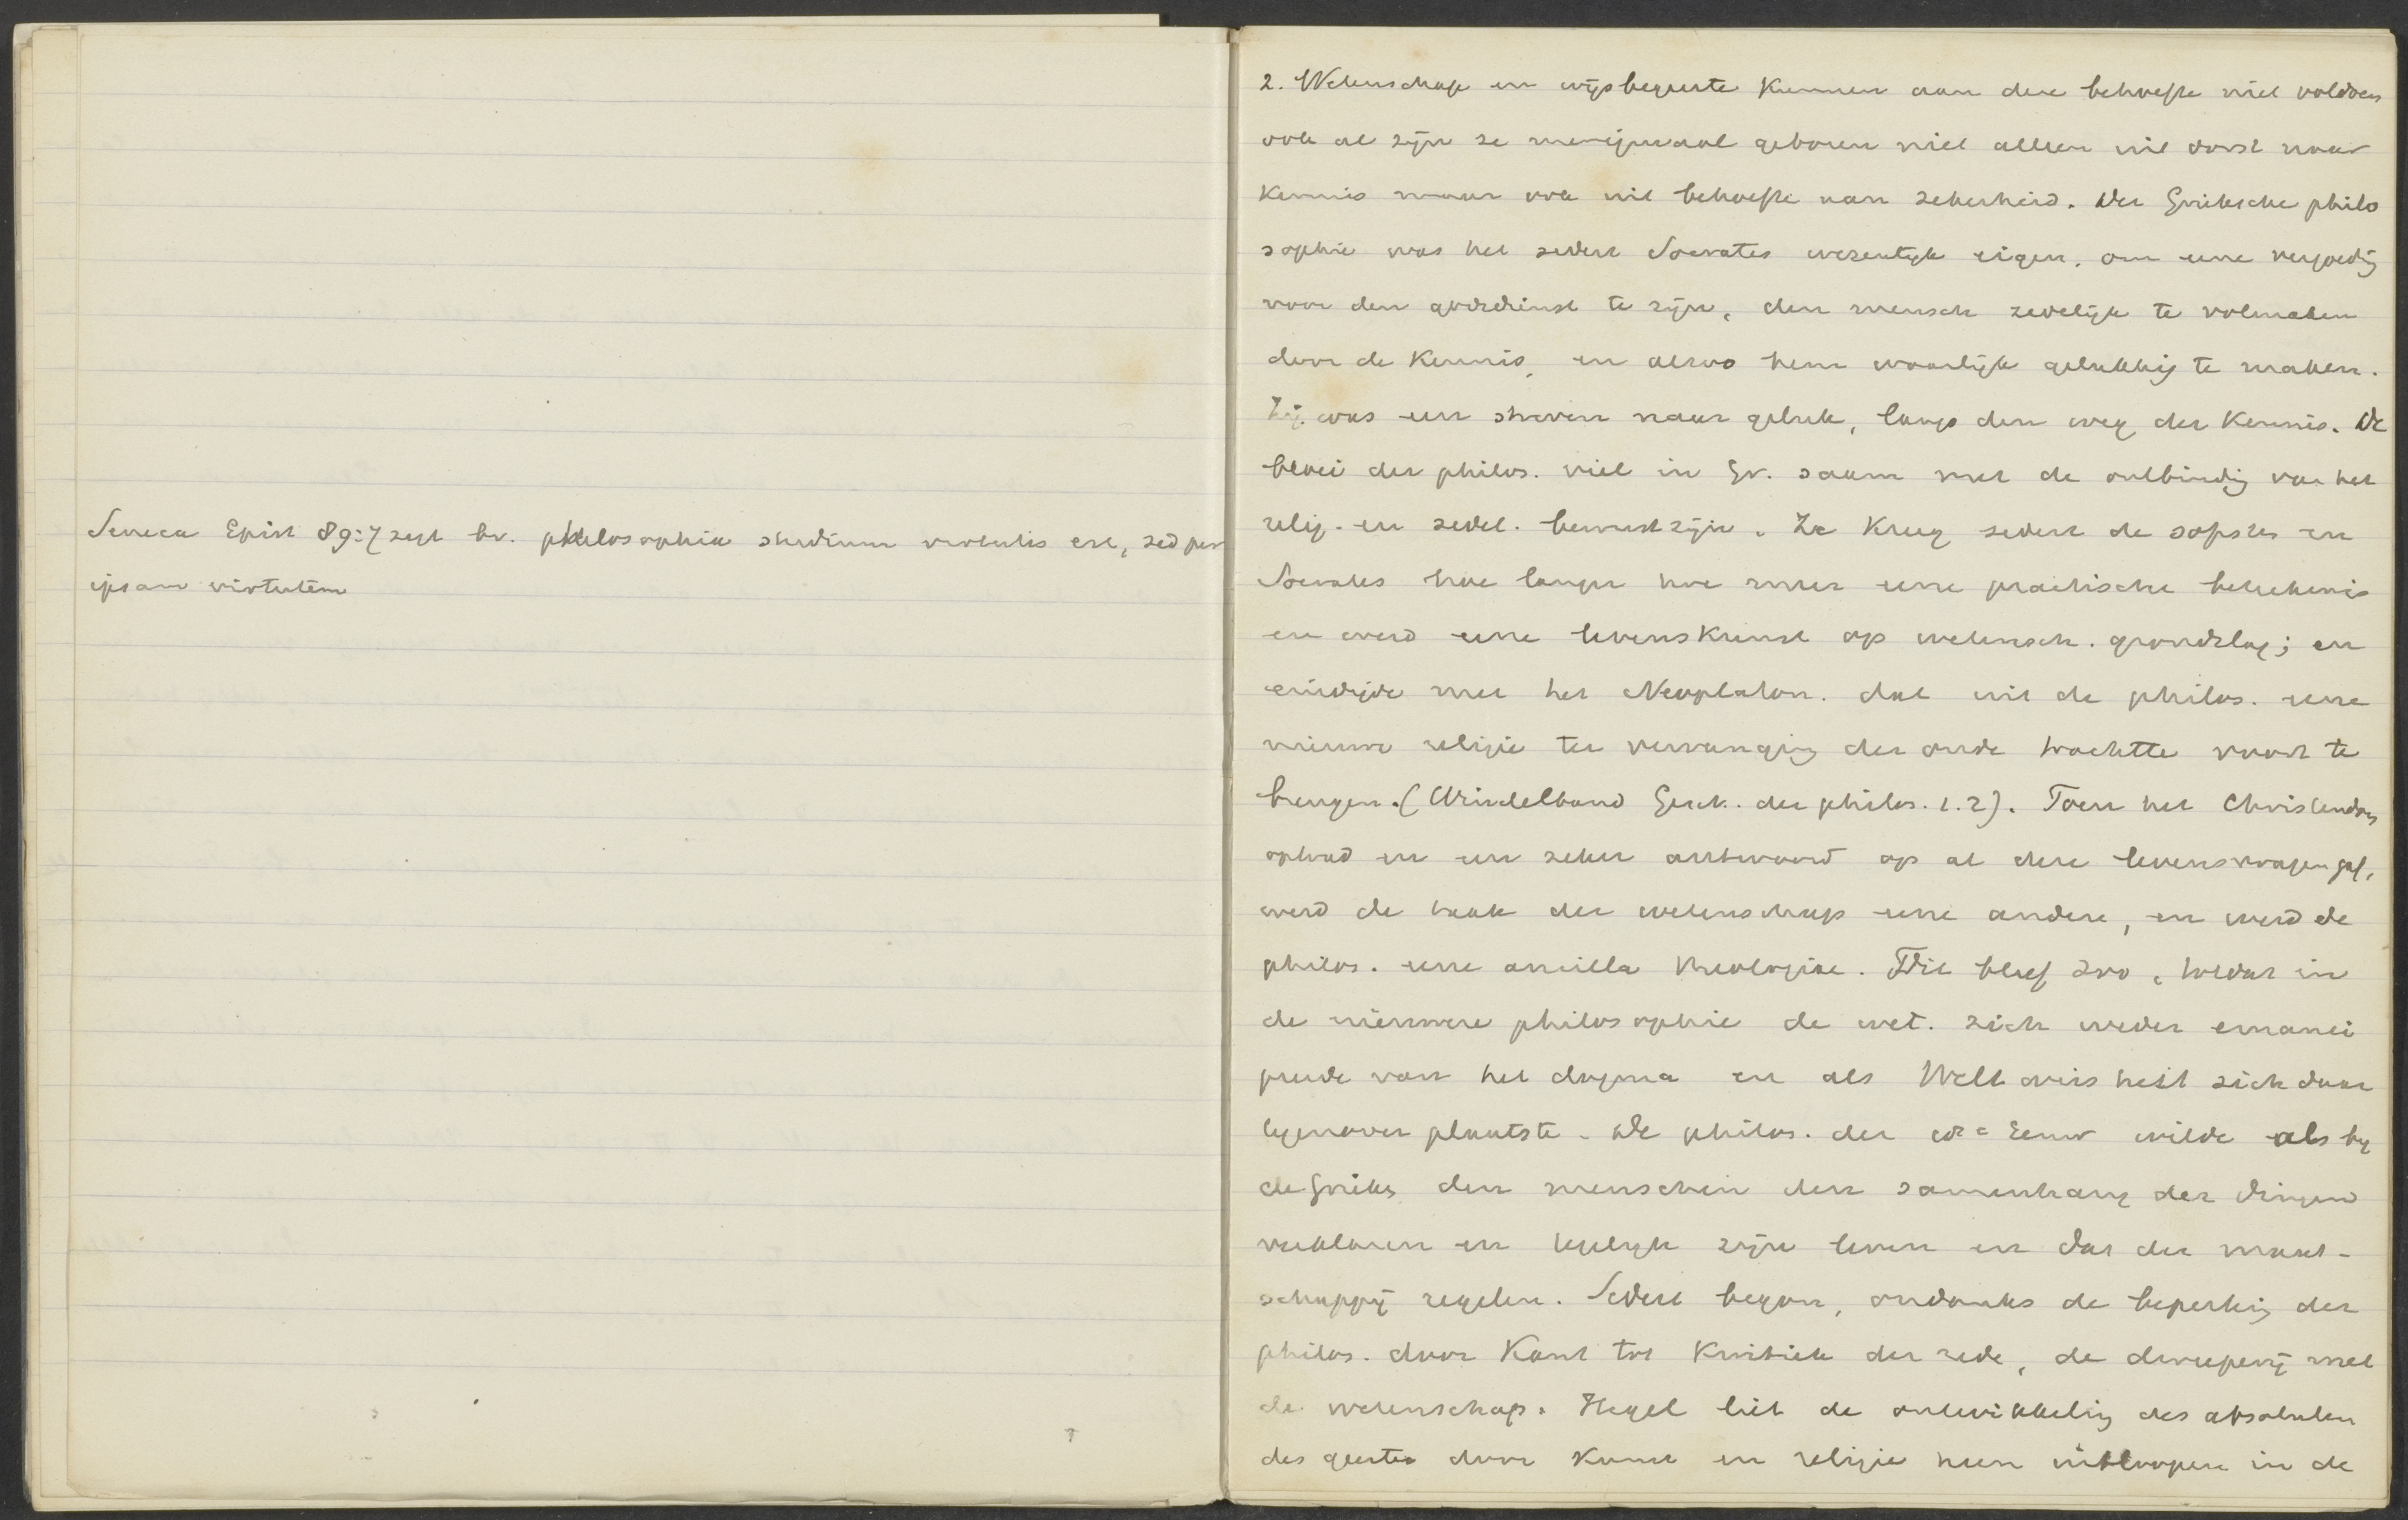 Seneca Epist 89:7 zegt bv. philosophia studium virtutis est, sed per
ipsam virtutem
2. Wetenschap en wijsbegeerte kunnen aan deze behoefte niet voldoen
ook al zijn ze menigmaal geboren niet alleen uit dorst naar
kennis maar ook uit behoefte aan zekerheid. Der Grieksche philo
sophie was het sedert Socrates wezenlijk eigen, om eene vergoedig
voor den godsdienst te zijn, den mensch zedelijk te volmaken
door de kennis, en alzoo hem waarlijk gelukkig te maken.
Zij was een streven naar geluk, langs den weg der kennis. De
bloei der philos. viel in Gr. saam met de ontbindig van het
relig. en zedel. bewustzijn. Ze kreeg sedert de sofstes en
Socrates hoe langer hoe meer eene practische beteekenis
en werd eene levenskunst op wetensch. grondslag; en
eindigde met het Neoplaton. dat uit de philos. eene
nieuwe religie ter vervanging der oude trachtte voort te
brengen. (Windelband Gesch. der philos. 1.2). Toen het Christendom
optrad en een zeker antwoord op al deze levensvragen gaf,
werd de taak der wetenschap eene andere, en werd de
philos. eene ancilla theologiae. Dit bleef zoo, totdat in
de nieuwere philosophie de wet. zich weder emanci
peerde van het dogma en als Weltweisheit zich daar
tegenover plaatste. De philos. der 18e Eeuw wilde als by
de Grieks den menschen den samenhang der dingen
verklaren en tegelijk zijn leven en dat der maat-
schappij regelen. Sedert begon, ondanks de beperkig der
philos. door Kant tot kritiek der rede, de dweeperij met
de wetenschap. Hegel liet de ontwikkelig des absoluten
des geestes door kunst en religie heen uitloopen in de